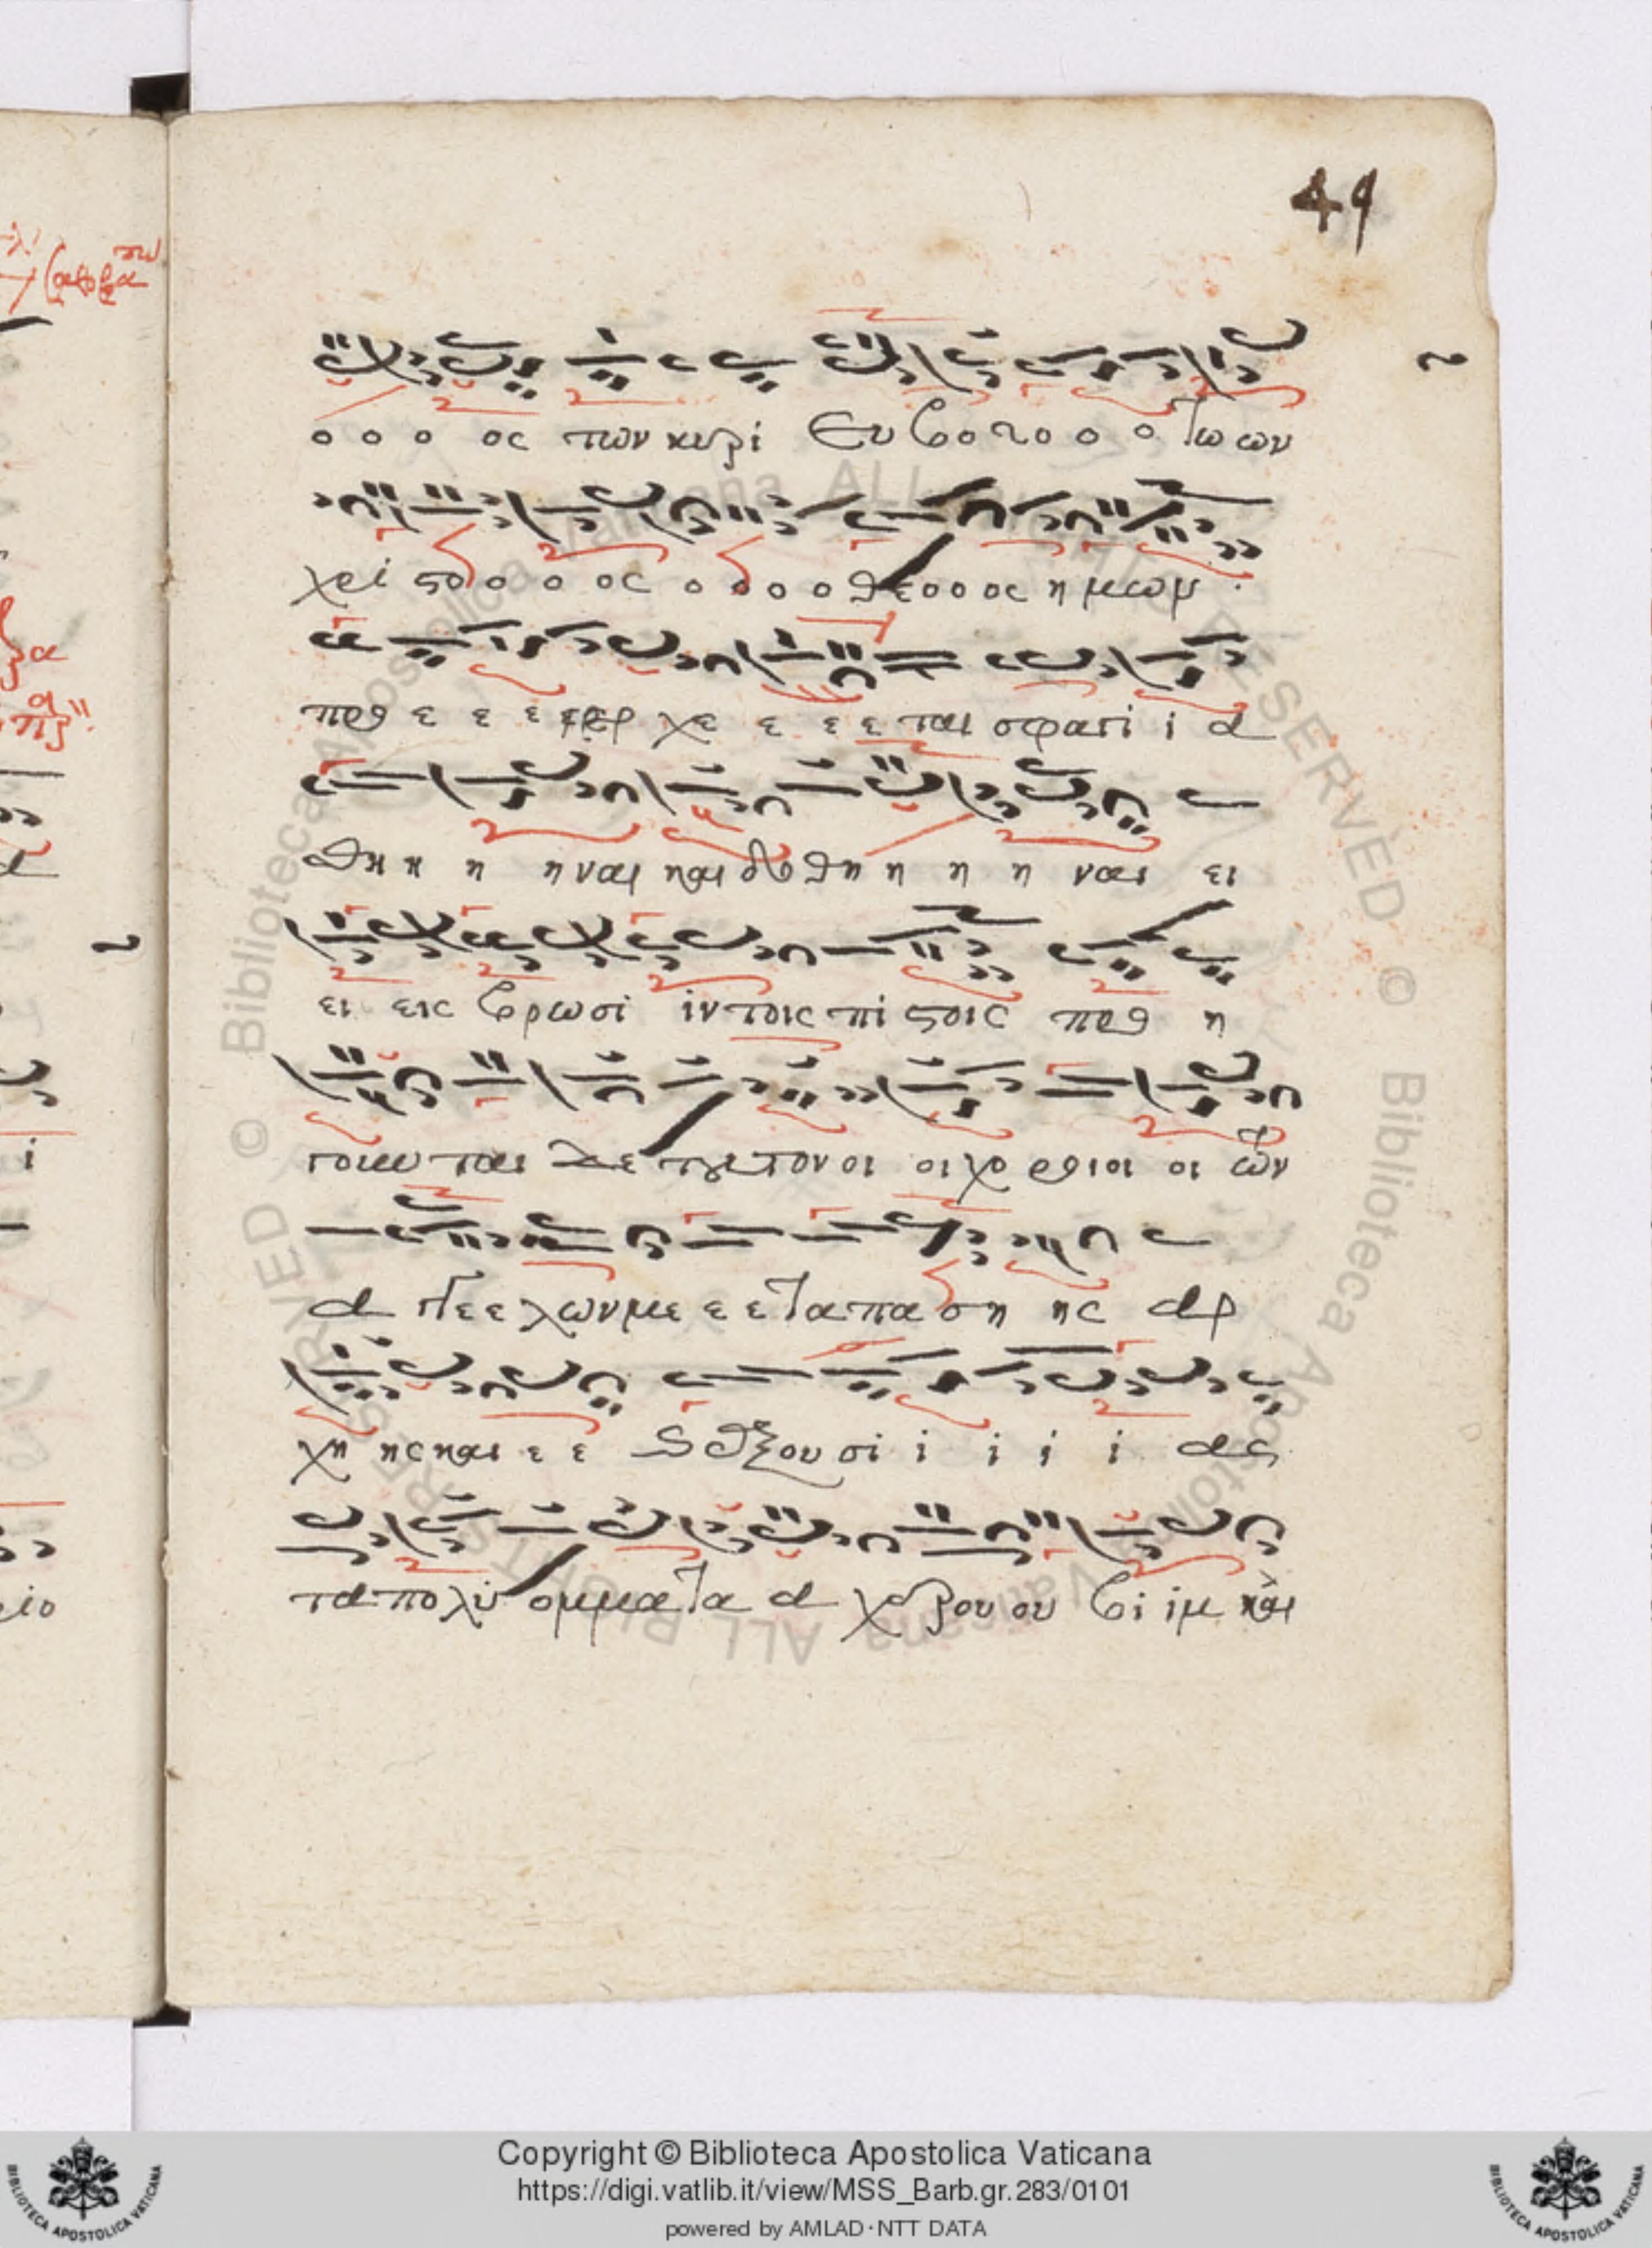 49
ο ο ο ος των κυρι Ευ βο το ο ο των ων
χρι στο ο ο ο ος ο ο ο ο ο θε ο ο ος η μων
προ ε ε ε ερ χε ε ε ε ται σφαγι ι α
σθη η η η ναι και δο θη η η η ναι ει
ει εις βρωσι ιν τοις πι στοις προ η
γουν ται δε του τον οι οι χο ροι οι οι των
α γγε ε λων με ε ε τα πα ση ης αρ
χη ης και ε ε ξου σι ι ι ι ι ας
τα πολυ ομματα α χε ρου ου βι ιμ και
Copyright © Biblioteca Apostolica Vaticana
https://digi.vatlib.it/view/MSS_Barb.gr.283/0101
powered by AMLAD·NTT DATA